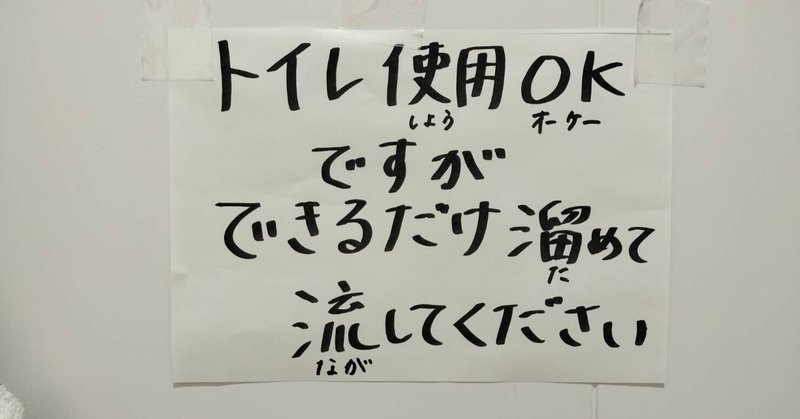 トイレ使用OK
しよう オーケー
ですが
できるだけ溜めて
た
流してください
なが